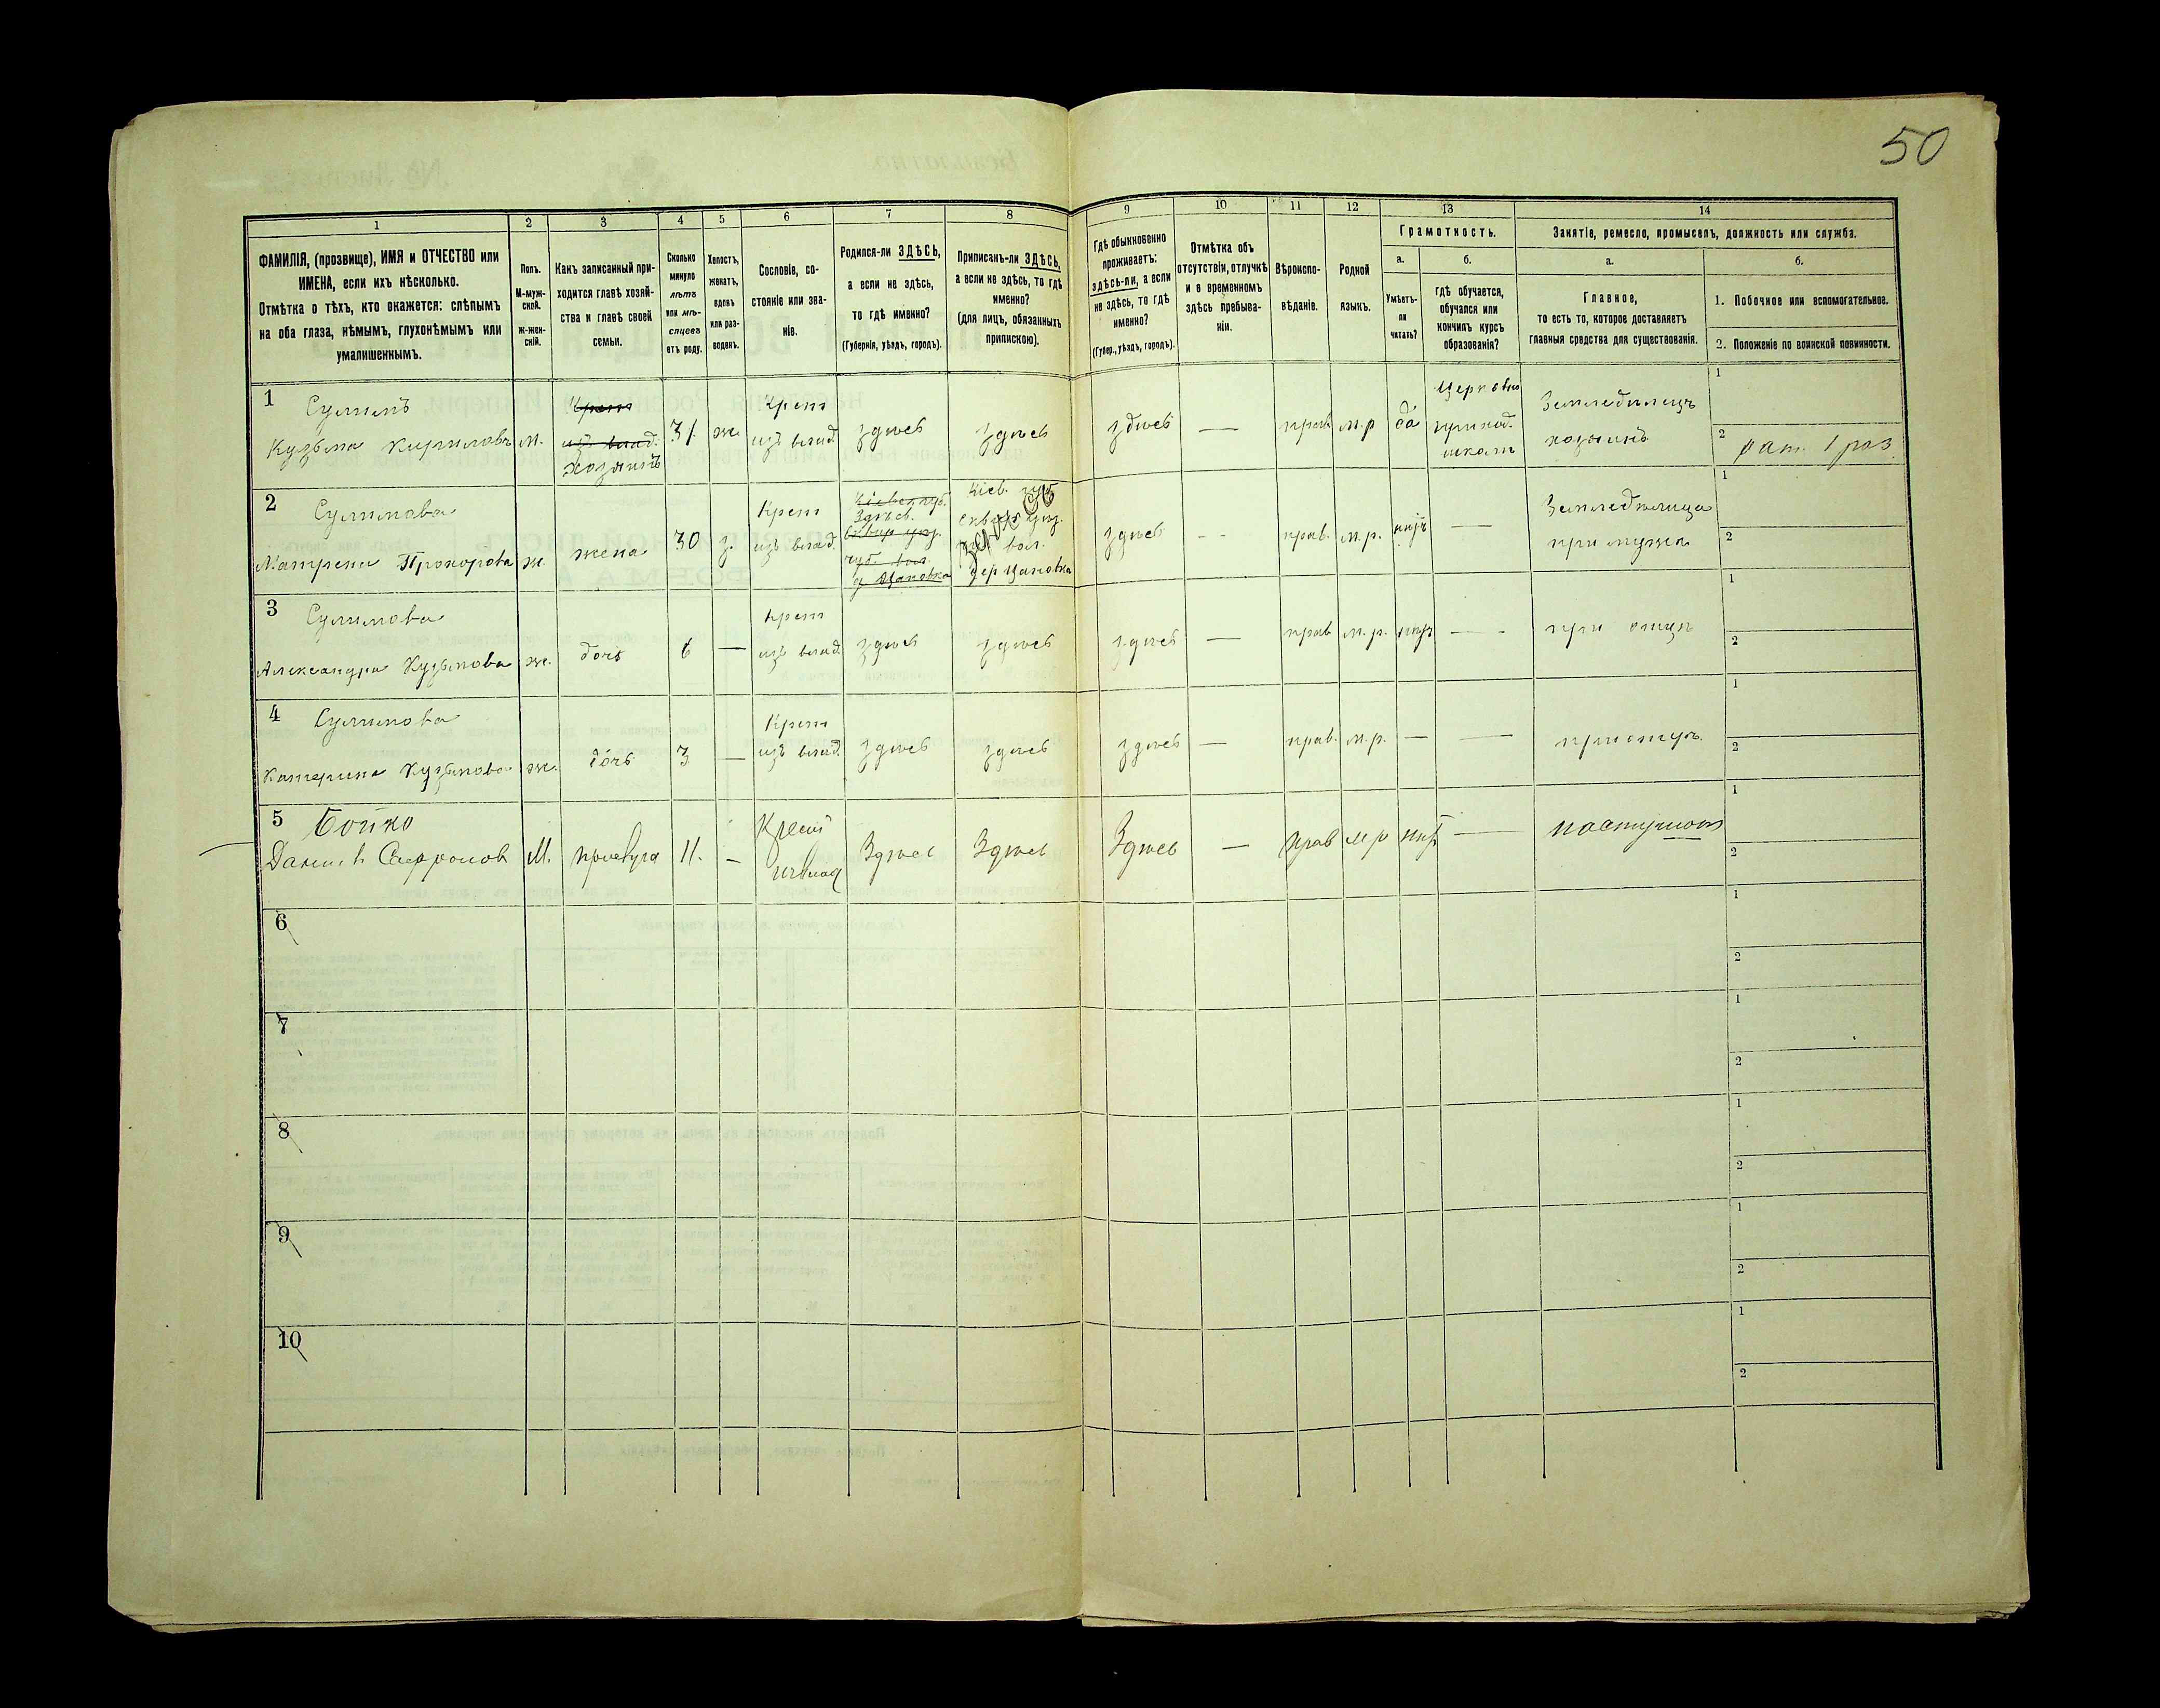 50
1
2
3
4
5
6
7
8
9
10
11
12
13
14
ФАМИЛІЯ, (прозвище), ИМЯ и ОТЧЕСТВО или
ИМЕНА, если ихъ нѣсколько.
Отмѣтка о тѣхъ, кто окажется: слѣпымъ
на оба глаза, нѣмымъ, глухонѣмымъ или
умалишеннымъ.
Полъ.
М-муж-
ской.
Ж-жен-
скій.
Какъ записанный при-
ходится главѣ хозяй-
ства и главѣ своей
семьи.
Сколько
минуло
лѣтъ
или мѣ-
сяцевъ
отъ роду.
Холостъ,
женатъ,
вдовъ
или раз-
веденъ.
Сословіе, со-
стояніе или зва-
ніе.
Родился-ли ЗДѢСЬ,
а если не здѣсь,
то гдѣ именно?
(Губернія, уѣздъ, городъ).
Приписанъ-ли ЗДѢСЬ,
а если не здѣсь, то гдѣ
именно?
(для лицъ, обязанныхъ
припискою).
Гдѣ обыкновенно
проживаетъ:
здѣсь-ли, а если
не здѣсь, то гдѣ
именно?
(Губер., уѣздъ, городъ).
Отмѣтка объ
отсутствіи, отлучкѣ
и о временномъ
здѣсь пребыва-
ніи.
Вѣроиспо-
вѣданіе.
Родной
языкъ.
Грамотность.
а.
Умѣетъ-
ли
читать?
б.
гдѣ обучается,
обучался или
кончилъ курсъ
образованія?
Занятіе, ремесло, промыселъ, должность или служба.
а.
Главное,
то есть то, которое доставляетъ
главныя средства для существованія.
б.
1. Побочное или вспомогательное.
2. Положеніе по воинской повинности.
1
Сулимъ
Кузьма Кириловъ
м.
Крест
изъ влад.
Хозяинъ
31.
ж.
Крест
изъ влад.
здѣсь
здѣсь
здѣсь
—
прав.
м.р
да
Церковно
приход.
школѣ
Земледѣлецъ
хозяинъ
1
2
рат. 1 раз.
2
Сулимова
Матрена Прохорова
ж.
жена
30
з.
Крест
изъ влад.
Кіевск. губ.
Здѣсь.
Сквир. уѣз.
д. Цаповка
Кіев. губ
Сквир. уѣз.
вол.
дер Цаповка
здѣсь
- -
прав.
м.р.
нѣтъ
—
Земледѣлица
при мужѣ
1
2
3
Сулимова
Александра Кузьмова
ж.
дочь
6
—
Крест
изъ влад.
здѣсь
здѣсь
здѣсь
—
прав
м.р.
нѣтъ
—
при отцѣ
1
2
4
Сулимова
Катерина Кузьмова
ж.
дочь
3
—
Крест
изъ влад.
здѣсь
здѣсь
здѣсь
—
прав.
м.р.
—
—
при отцѣ
1
2
5
Бойко
Данилъ Сафроновъ
М.
прислуга
11.
—
Крест
изъ влад
Здѣсь
Здѣсь
Здѣсь
—
прав
м р
нѣтъ
—
пастушокъ
1
2
6
1
2
7
1
2
8
1
2
9
1
2
10
1
2